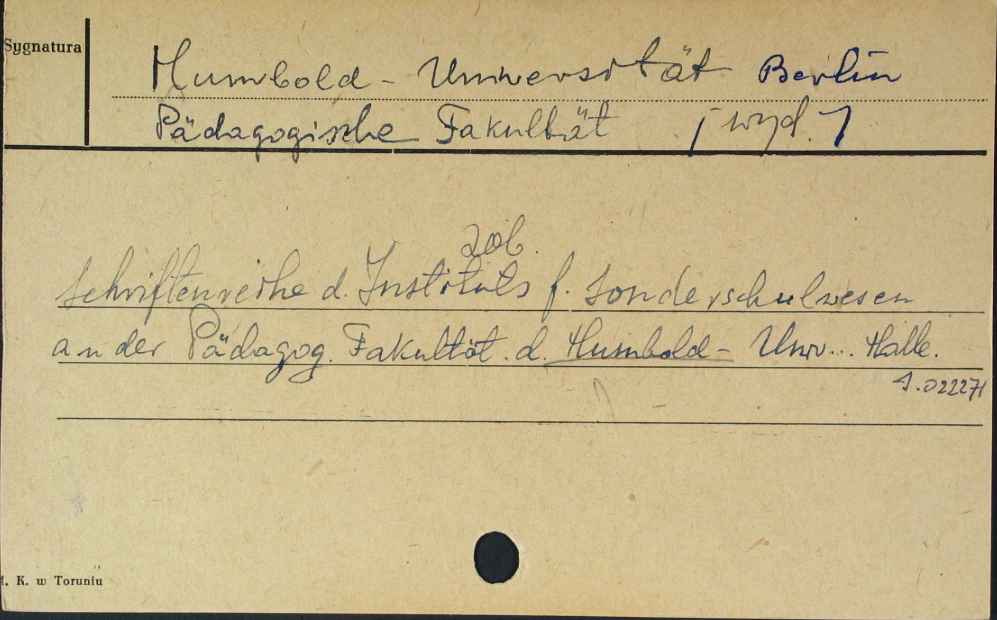 Sygnatura
Humbold - Universität Berlin
Pädagogische Fakultät [wyd.]
zob.
Schriftenreihe d. Instituts f. Sonderschulwesen
an der Pädagog. Fakultät. d. Humbold - Univ... Halle.
S.022271
K. w Toruniu